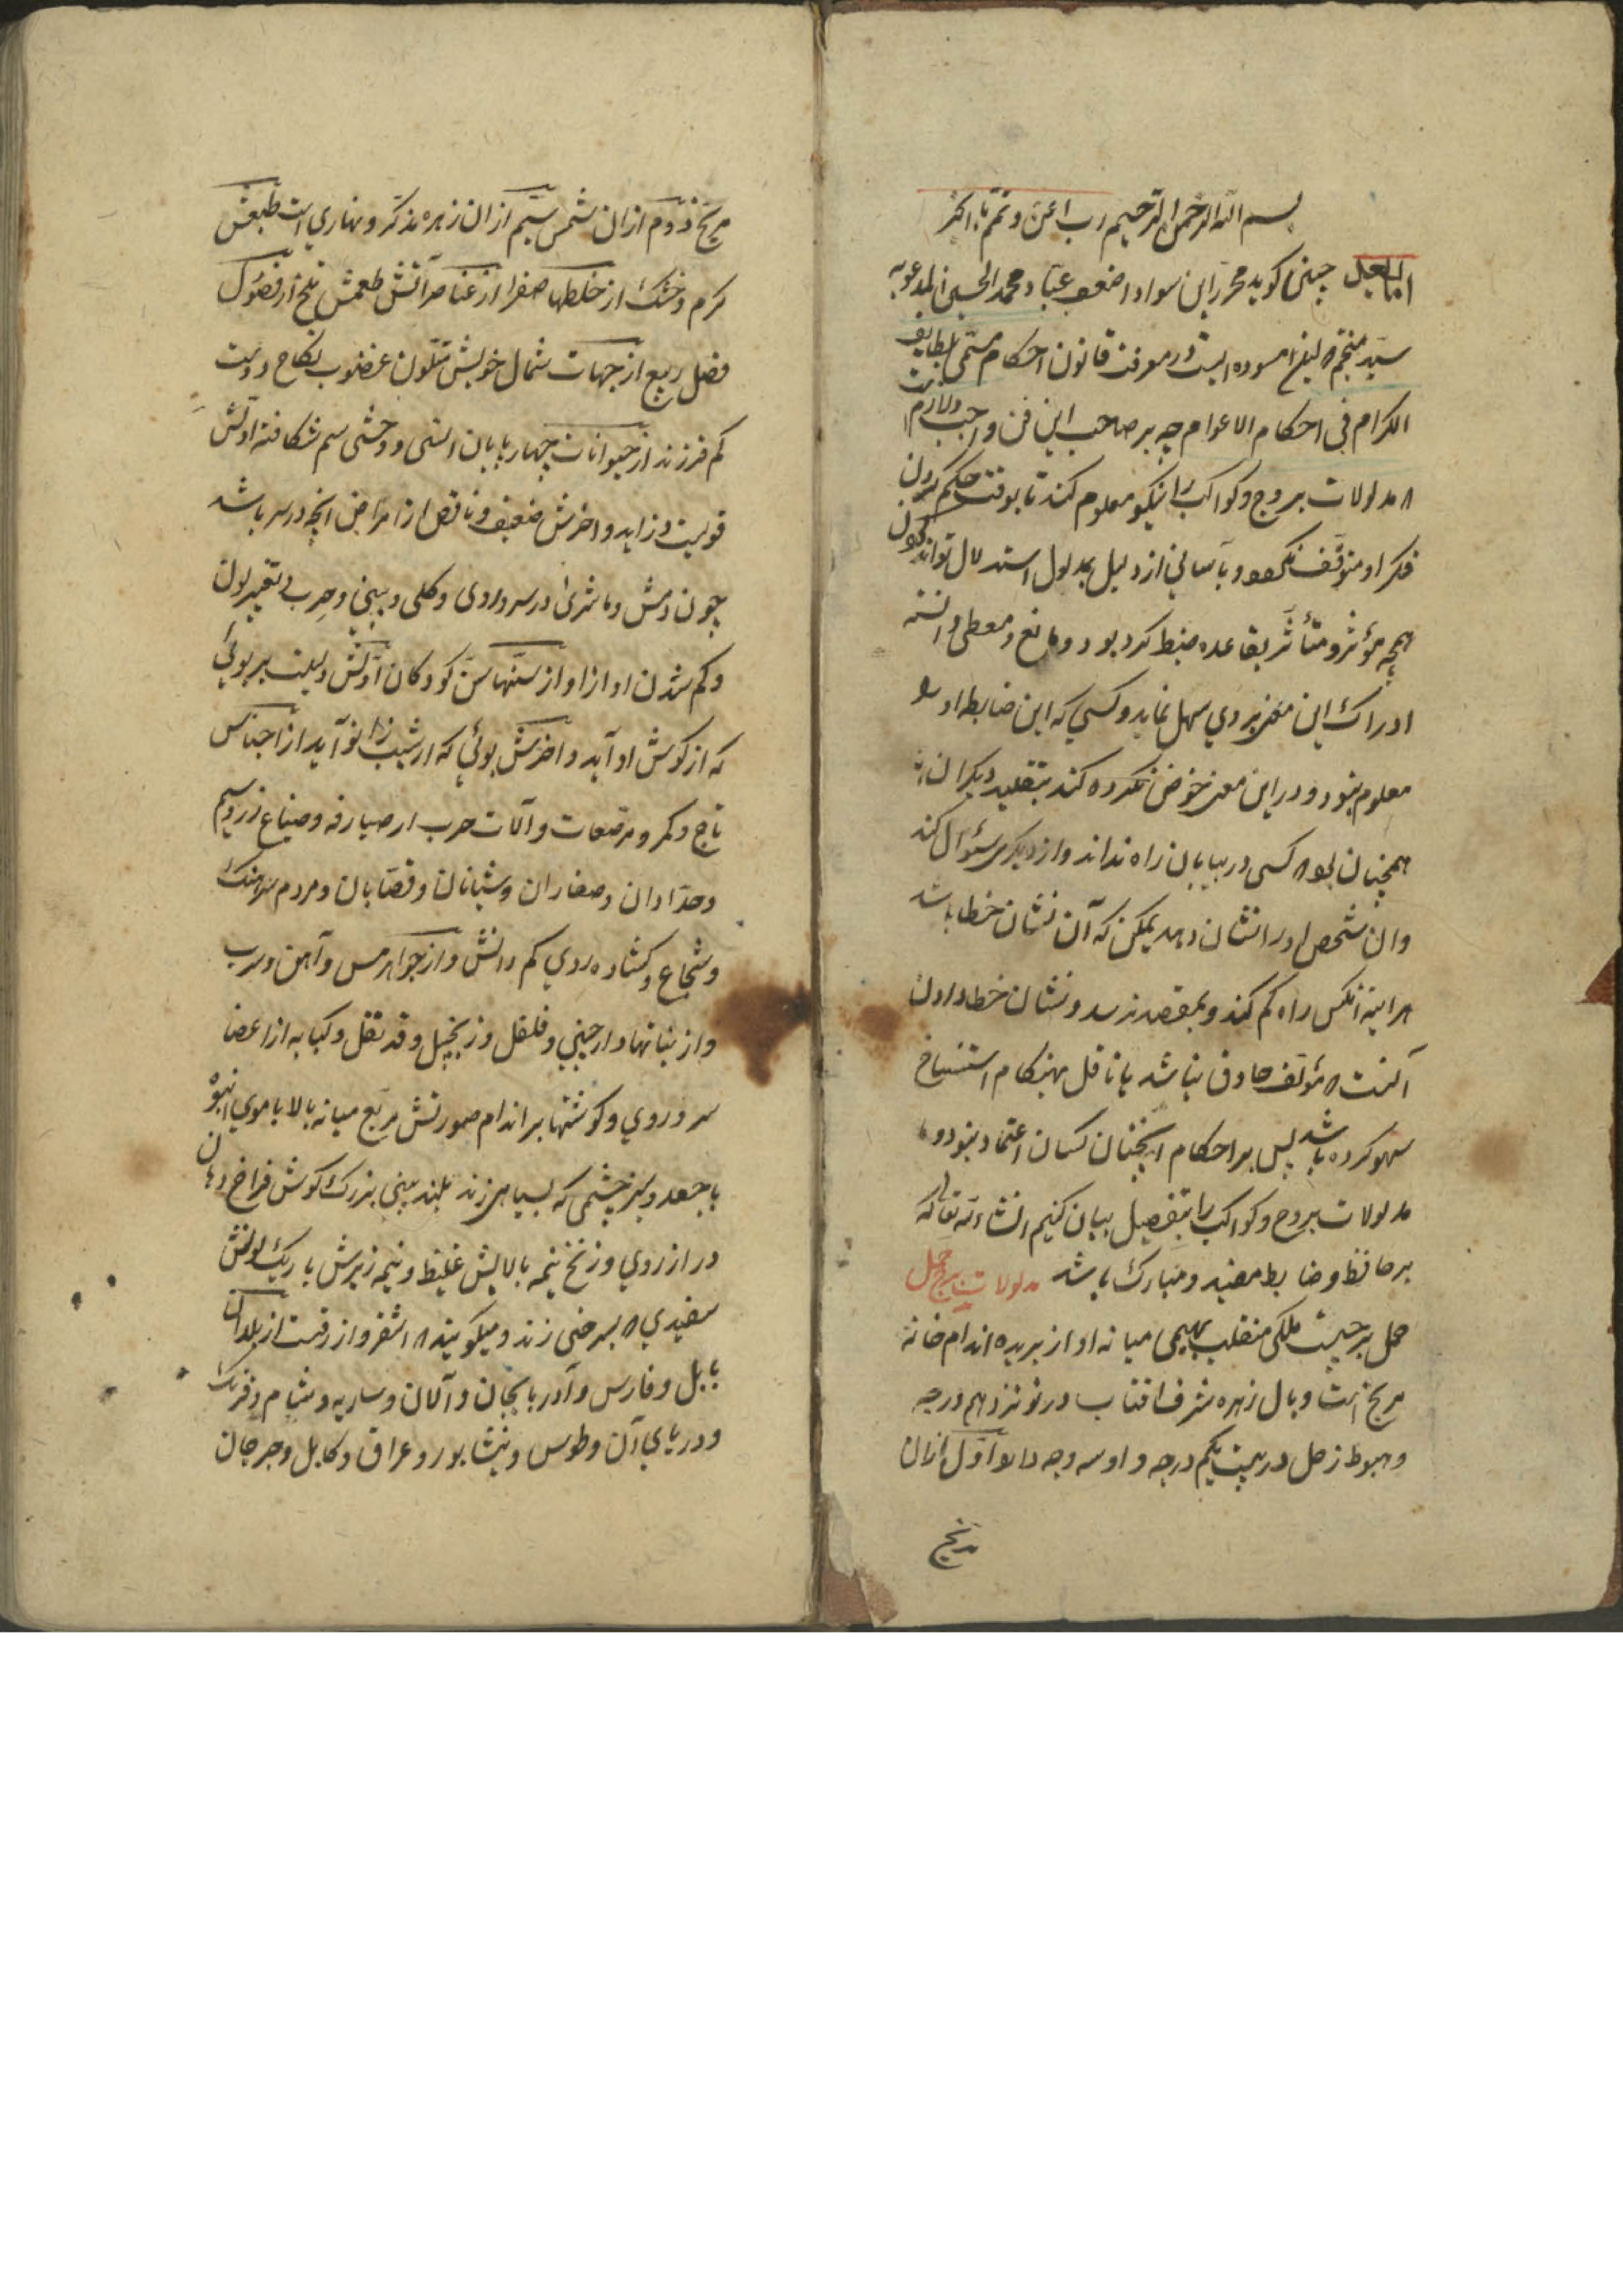 بسم الله الرحمن الرحیم رب اعن و تمم بالخیر
اما بعد چنین کوید محرر این سواد اضعف عباد محمد الحسینی المدعو به
سید منجم که این مسوده ایست در معرفت قانون احکام مسمی بلطایف
الکرام فی احکام الاعوام چه بر صاحب این فن واجب و لازم است
که مدلولات بروج و کواکب را نیکو معلوم کند تا بوقت حکم کردن
فکر او متوقف نکردد و بآسانی از دلیل بمدلول استدلال تواند کردن
چه مؤثر و متأثر بقاعده ضبط کرده بود و مانع و معطی دانسته
ادراک این معنی بر وی سهل نماید و کسی که این ضابطه او را
معلوم نبود و در این معنی خوض نکرده کند بتقلید دیکران
همچنان بود که کسی در بیابان راه نداند و از دیکری سؤال کند
و ان شخص او را نشان دهد یمکن که آن نشان خطا باشد
هر اینه انکس راه کم کند و بمقصد نرسد و نشان خطا دادن
آنست که مؤلف حاذق نباشد یا ناقل بهنکام استنساخ
سهو کرده باشد پس بر احکام اینچنان کسان اعتماد نبود و ما
مدلولات بروج و کواکب را بتفصیل بیان کنیم انشاءالله تعالی که
بر حافظ و ضابط مفید و مبارک باشد مدلولات برج حمل
حمل برجیست ملکی منقلب بهیمی میانه اواز بریده اندام خانهٔ
مریخ است و وبال زهره شرف افتاب در نوزدهم درجه
و هبوط زحل در بیست یکم درجه و او سه وجه دارد اول ازان
مریخ
مریخ دوم ازان شمس سیم ازان زهره مذکر و نهاری است طبعش
کرم و خشک از خلطها صفرا از عناصر آتش طعمش تلخ از فصول
فصل ربیع از جهات شمال خویش متلون غضوب نکاح دوست
کم فرزند از حیوانات چهارپایان انسی و وحشی سم شکافته اولش
قویست و زاید و اخرش ضعیف و ناقص از امراض انچه در سر باشد
چون و مشری در سر و روی و کلی و بینی و جرب و تغییر لون
و کم شدن اواز او از سنها سن کودکان اولش دلیلست بر بوئی
که از کوش او آید و اخرش بوئی که از شیب زانو آید از اجناس
تاج و کمر و مرصعات و آلات حرب از صیارفه و صناع زر و سیم
و حدادان و صفاران و شبانان و قصابان و مردم سرهنک
و شجاع و کشاده روی کم دانش و از جواهر مس و آهن و سرب
و از نباتها دارچینی و فلفل و زنجبیل و قرنفل و کبابه از اعضا
سر و روی و کوشتها بر اندام صورتش مربع میانه بالا با موی انبوه
با جعد و سبز چشمی که بسیاهی زند بلند بینی بزرک کوش فراخ دهان
دراز روی و زنخ نیمه بالایش غلیظ و نیمه زیرش باریک لونش
سفیدی که بسرخی زند و میکویند که اشقر و ازرقست از بلدان
بابل و فارس و آذربایجان و آلان و ساریه و شام و فرنک
و دریای آن و طوس و نیشابور و عراق و کابل و جرجان